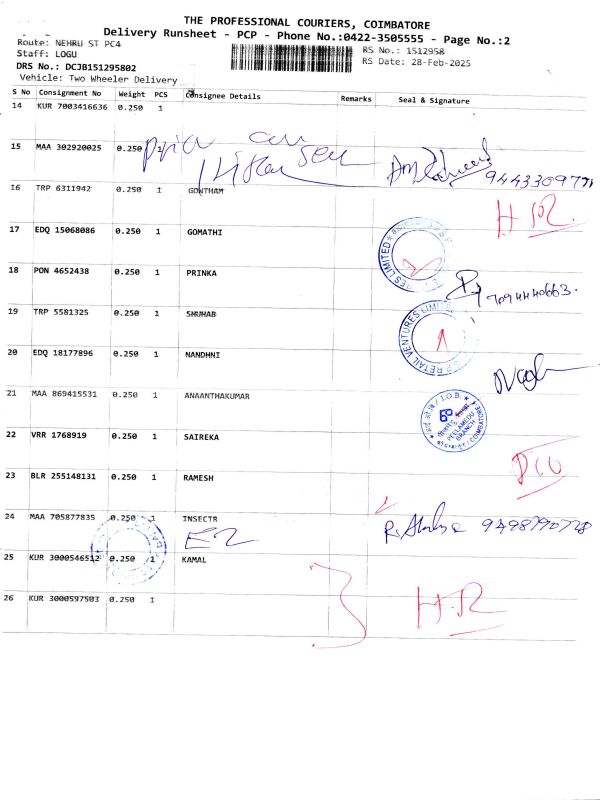 THE PROFESSIONAL COURIERS, COIMBATORE
Delivery Runsheet - PCP - Phone No.:0422-3505555 - Page No.:2
Route: NEHRU ST PC4
RS No.: 1512958
Staff: LOGU
RS Date: 28-Feb-2025
DRS No.: DCJB151295802
Vehicle: Two Wheeler Delivery
S No Consignment No Weight PCS Consignee Details Remarks Seal & Signature
14 KUR 7003416636 0.250 1
15 MAA 302920025 0.250 1
9443309771
16 TRP 6311942 0.250 1 GOWTHAM
HR.
17 EDQ 15068086 0.250 1 GOMATHI
18 PON 4652438 0.250 1 PRINKA
7094440663.
19 TRP 5581325 0.250 1 SHUHAB
RETAIL VENTURES LIMITED
20 EDQ 18177896 0.250 1 NANDHNI
21 MAA 869415531 0.250 1 ANAANTHAKUMAR
I.O.B.
PEELAMEDU
BRANCH
COIMBATORE
22 VRR 1768919 0.250 1 SAIREKA
23 BLR 255148131 0.250 1 RAMESH
24 MAA 705877835 0.250 1 INSECTR
9498790728
25 KUR 3000546512 0.250 1 KAMAL
26 KUR 3000597503 0.250 1
HR